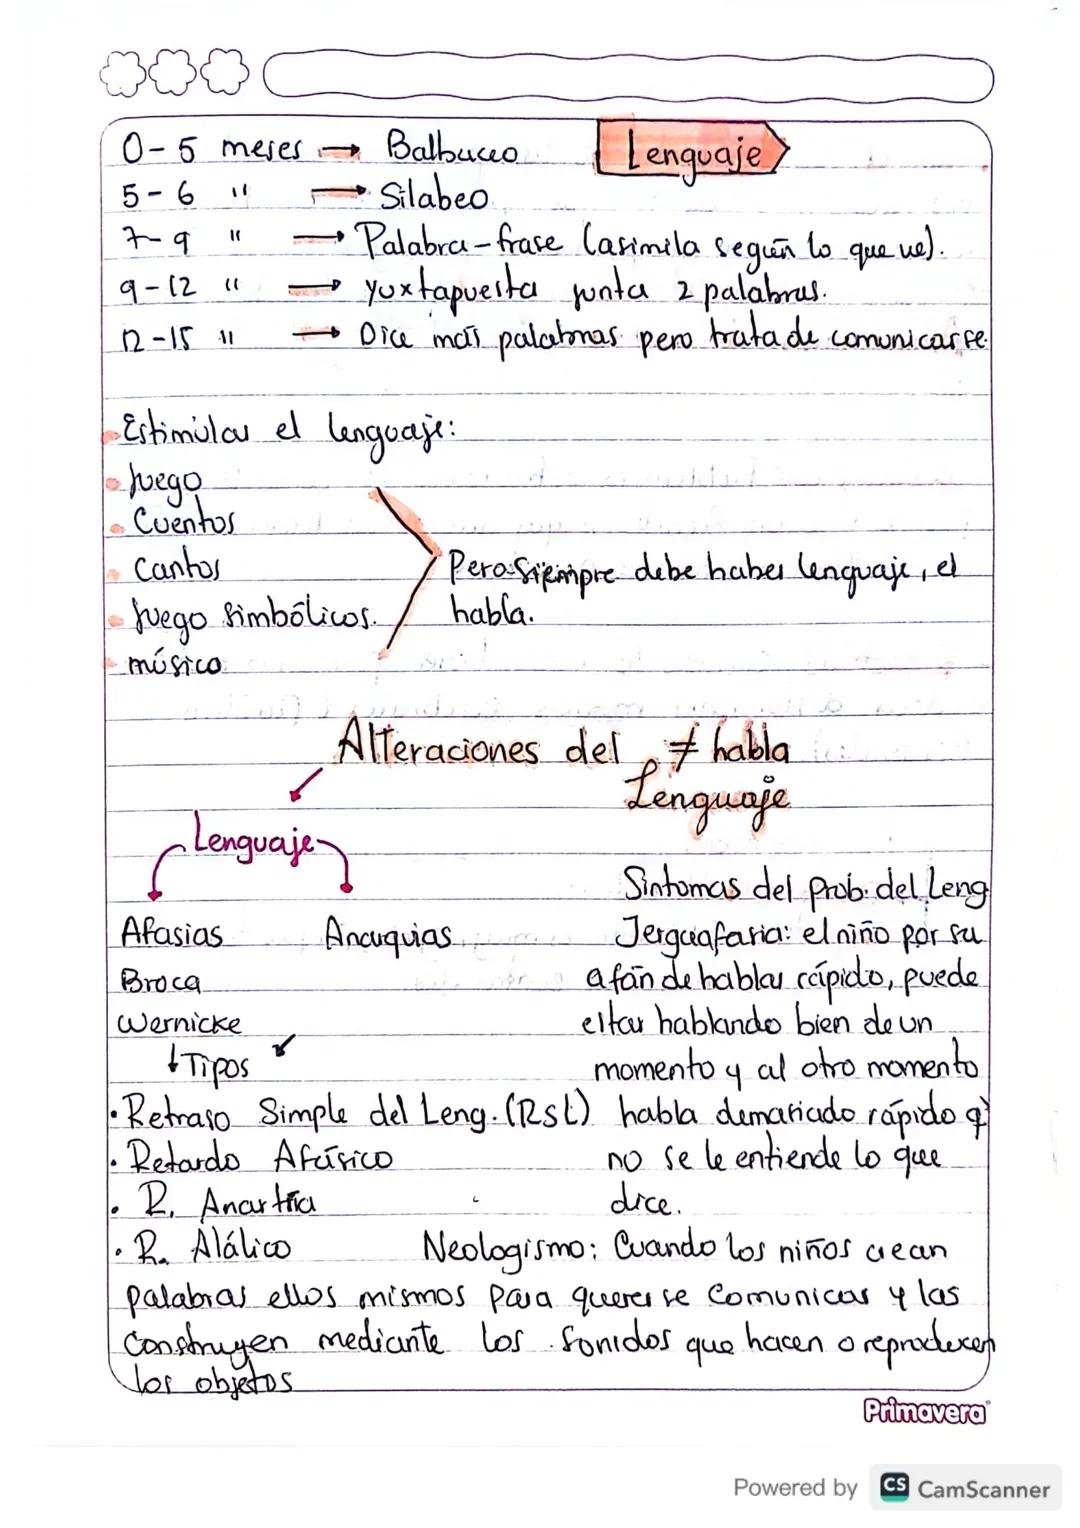 Lenguaje
0-5 meses → Balbuceo
5-6 " → Silabeo
7-9 " → Palabra-frase (asimila según lo que ve).
9-12 " → yuxtapuesta junta 2 palabras.
12-15 " → Dice más palabras pero trata de comunicarse.
Estimular el lenguaje:
• Juego
• Cuentos
• Cantos
• Juego simbólicos.
• músico
Pero siempre debe haber lenguaje, el
habla.
Alteraciones del ≠ habla
Lenguaje
Lenguaje
Afasias
Broca
Wernicke
Anarquias
↓ Tipos
• Retraso Simple del Leng. (RSL)
• Retardo Afásico
• R. Anartria
• R. Alálico
Sintomas del prob. del Leng
Jergafasia: el niño por su
afán de hablar rápido, puede
estar hablando bien de un
momento y al otro momento
habla demasiado rápido q'
no se le entiende lo que
dice.
Neologismo: Cuando los niños crean
palabras ellos mismos para quererse comunicar y las
construyen mediante los sonidos que hacen o reproducen
los objetos
Primavera
Powered by CS CamScanner